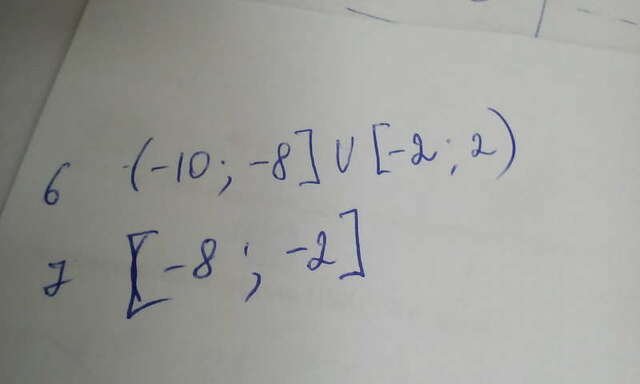 6 (-10; -8] ∪ [-2; 2)
7 [-8; -2]